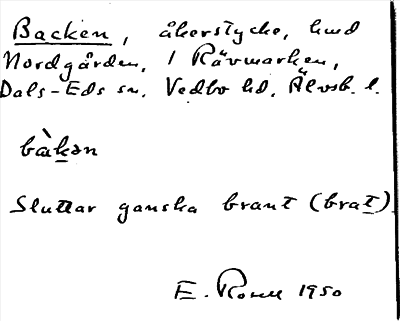 Backen, åkerstycke, hmd
Nordgården, 1 Rävmarken,
Dals-Eds sn. Vedbo hd, Älvsb. l.
bàkən
Sluttar ganska brant (brat)
E. 1950